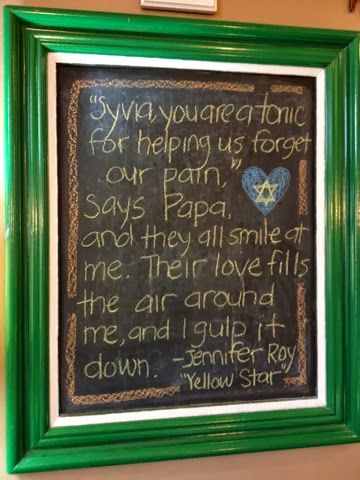 "Syvia, you are a tonic
for helping us forget
our pain,"
says Papa,
and they all smile at
me. Their love fills
the air around
me, and I gulp it
down. -Jennifer Roy,
"Yellow Star"